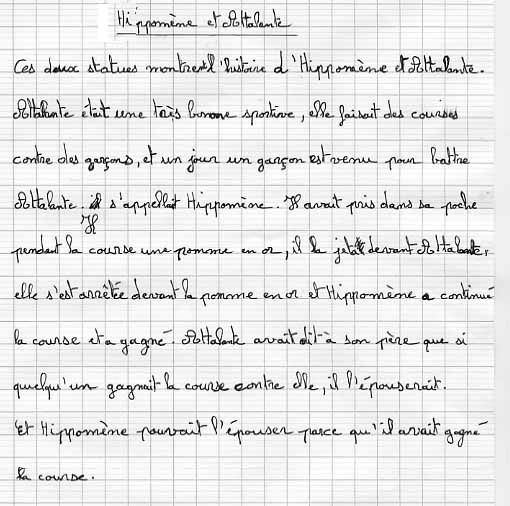 Hippomène et Attalante
Ces deux statues montrent l'histoire d'Hippomène et d'Attalante.
Attalante était une très bonne sportive, elle faisait des courses
contre des garçons, et un jour un garçon est venu pour battre
Attalante. il s'appellait Hippomène. Il avait pris dans sa poche
Il
pendant la course une pomme en or, il la jeta devant Attalante,
elle s'est arrêtée devant la pomme en or et Hippomène a continué
la course et a gagné. Attalante avait dit à son père que si
quelqu'un gagnait la course contre elle, il l'épouserait.
Et Hippomène pouvait l'épouser parce qu'il avait gagné
la course.